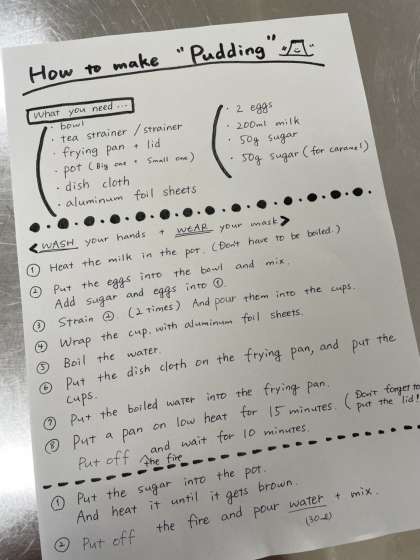 How to make "Pudding"
What you need...
・bowl
・tea strainer / strainer
・frying pan + lid
・pot (Big one + Small one)
・dish cloth
・aluminum foil sheets
・2 eggs
・200ml milk
・50g sugar
・50g sugar (for caramel)
<WASH your hands + WEAR your mask>
① Heat the milk in the pot. (Don't have to be boiled.)
② Put the eggs into the bowl and mix.
Add sugar and eggs into ①.
③ Strain ②. (2 times) And pour them into the cups.
④ Wrap the cup with aluminum foil sheets.
⑤ Boil the water.
⑥ Put the dish cloth on the frying pan, and put the
cups.
⑦ Put the boiled water into the frying pan.
⑧ Put a pan on low heat for 15 minutes. (Don't forget to
put the lid!
Put off the fire and wait for 10 minutes.
① Put the sugar into the pot.
And heat it until it gets brown.
② Put off the fire and pour water + mix.